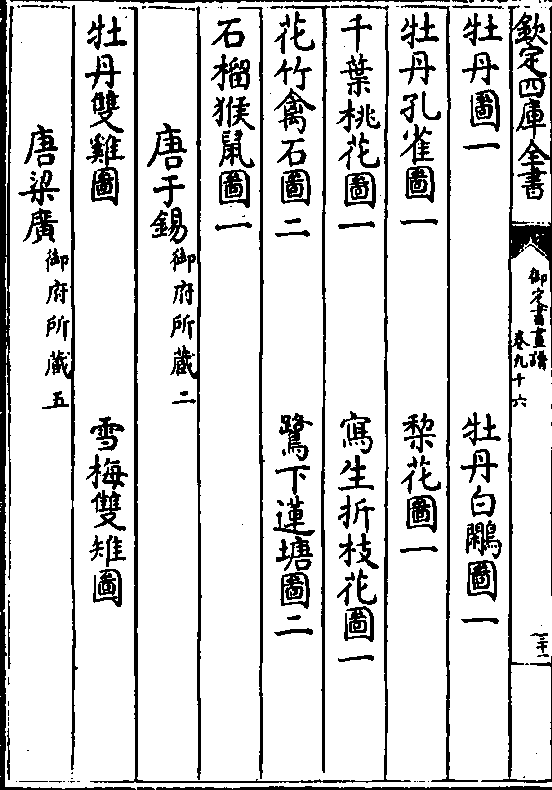 欽定四庫全書
御定書畫譜
卷九十六
三十一
牡丹圖一
牡丹白鷴圖一
牡丹孔雀圖一
梨花圖一
千葉桃花圖一
寫生折枝花圖一
花竹禽石圖二
鷺下蓮塘圖二
石榴猴鼠圖一
唐于錫御府所藏二
牡丹雙雞圖
雪梅雙雉圖
唐梁廣御府所藏五